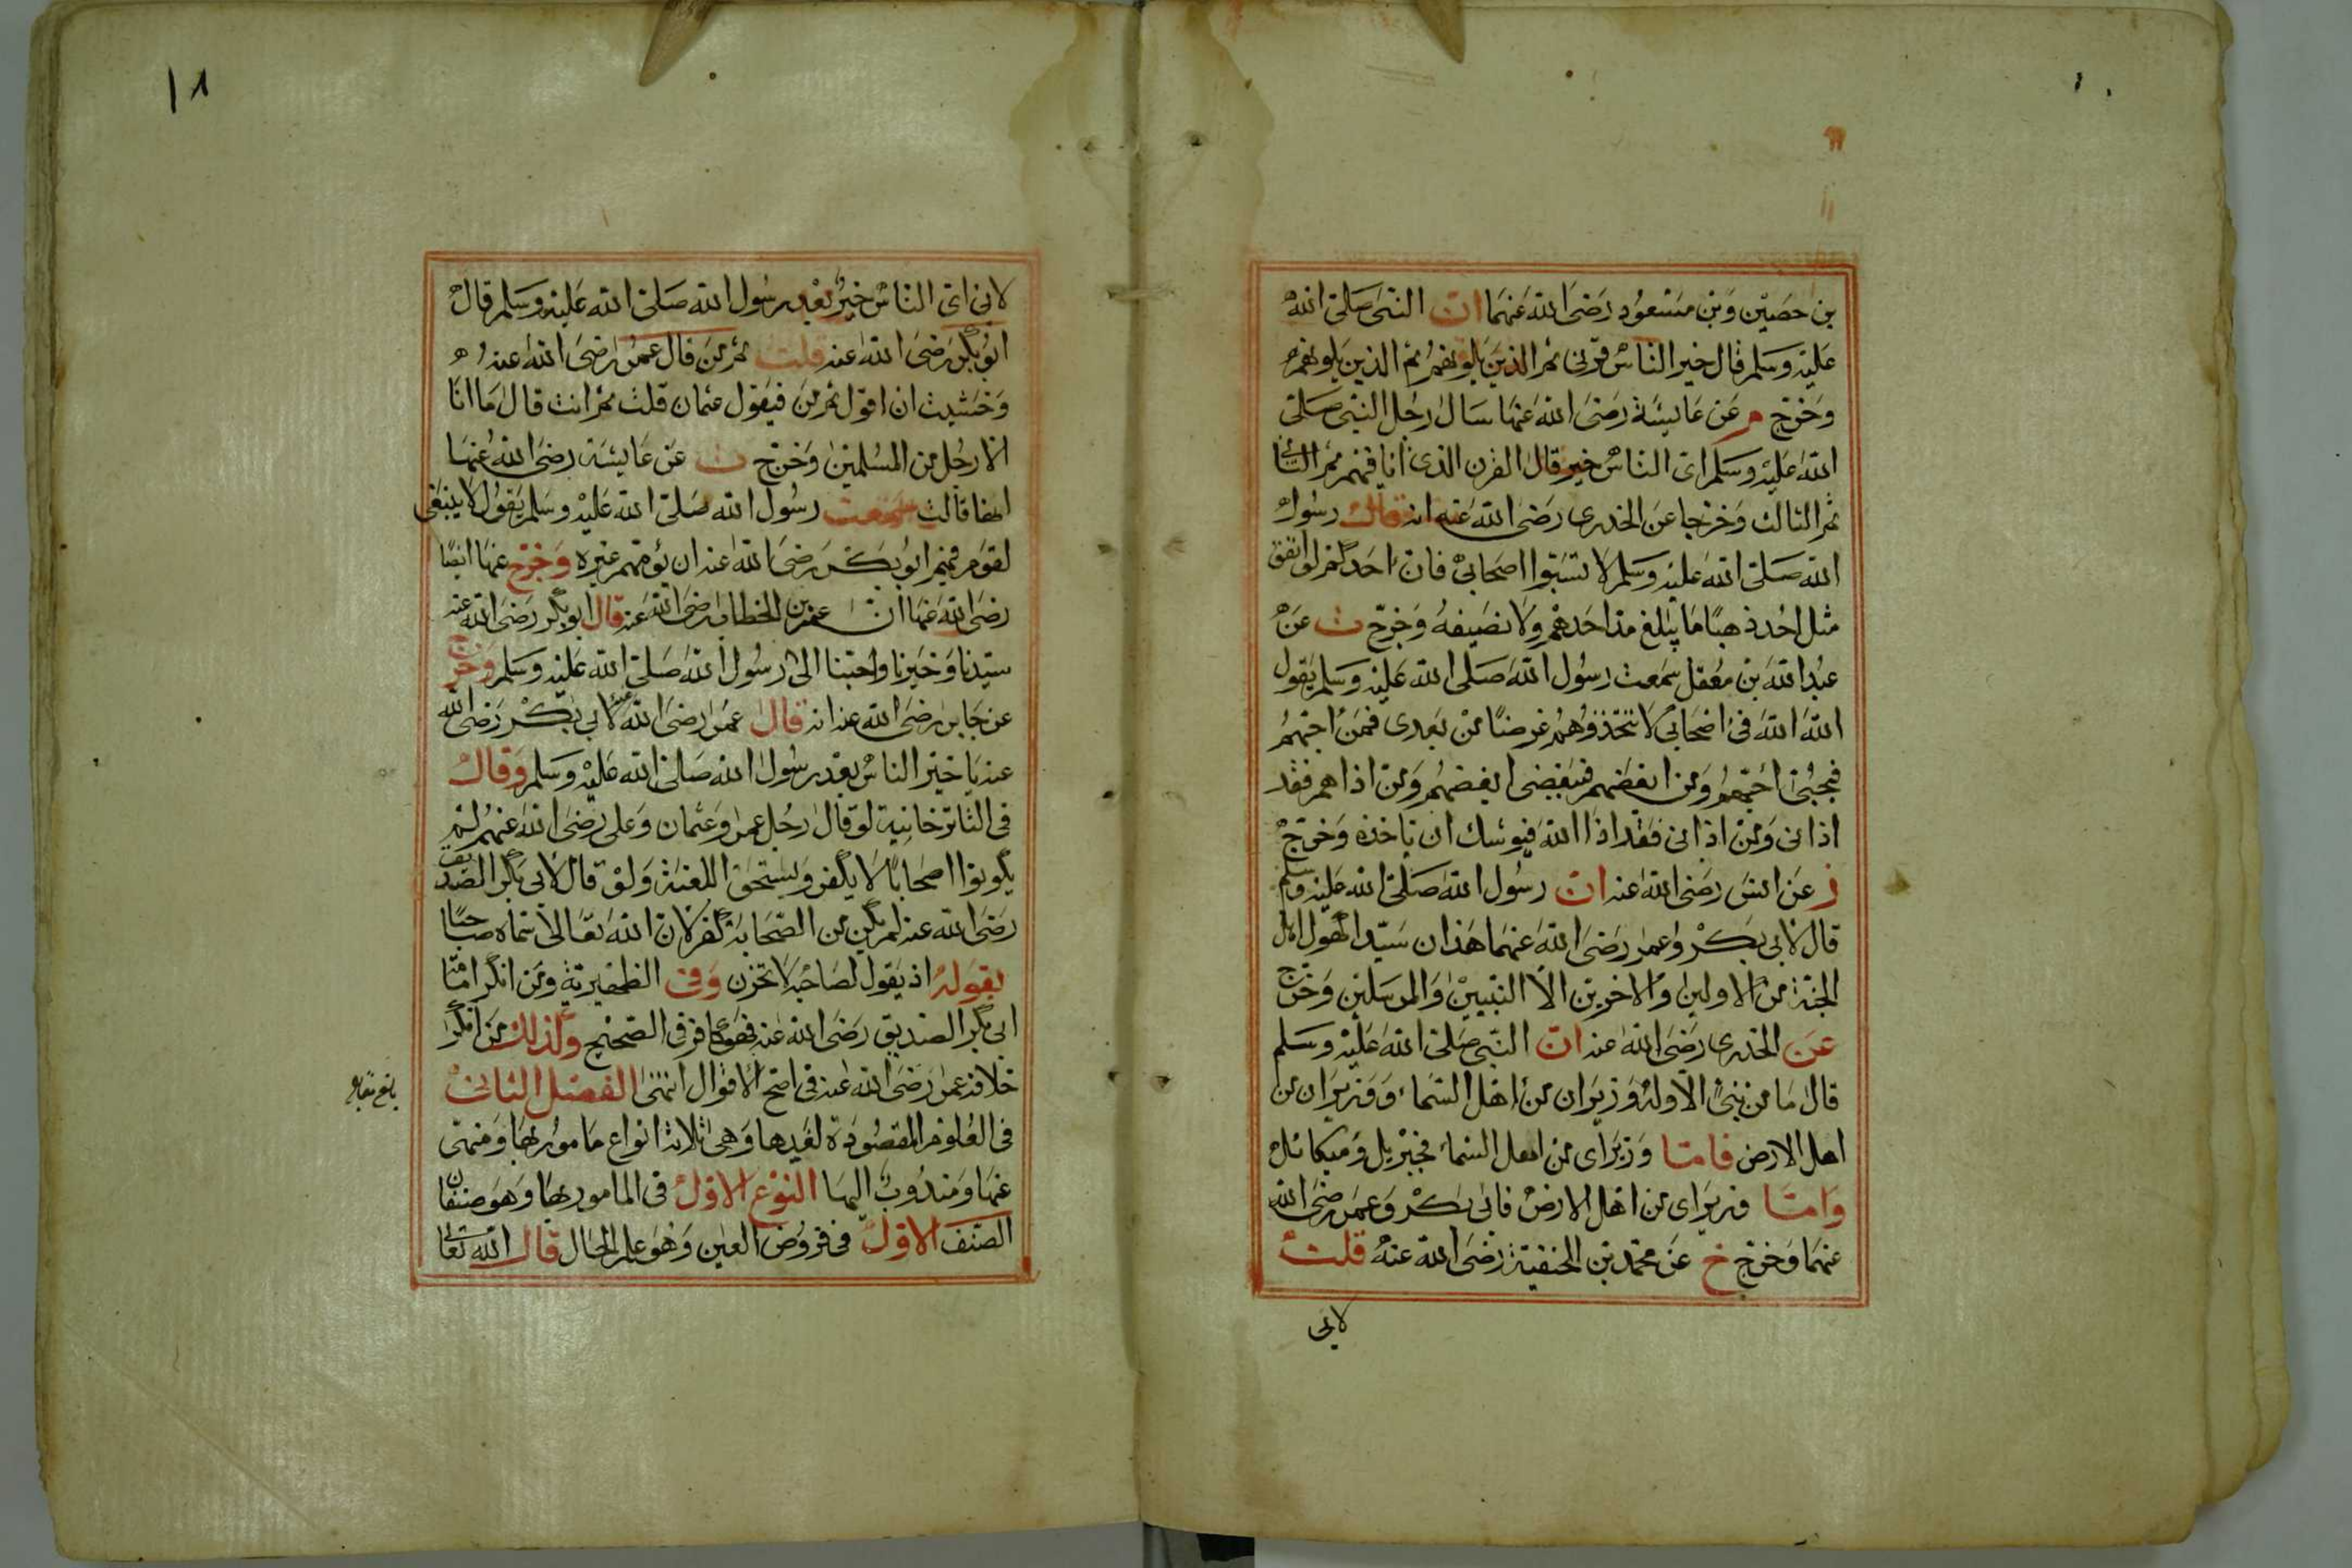 بن حصين وبن مسعود رضى الله عنهما ان النبى صلى الله
عليه وسلم قال خير الناس قرنى ثم الذين يلونهم ثم الذين يلونهم
وخرج م عن عايشة رضى الله عنها سال رجل النبى صلى
الله عليه وسلم اى الناس خير قال القرن الذى انا فيهم ثم الثانى
ثم الثالث وخرجا عن الخدرى رضى الله عنه انه قال رسول
الله صلى الله عليه وسلم لا تسبوا اصحابى فان احدكم لو انفق
مثل احد ذهبا ما يبلغ مد احدهم ولا نصيفه وخرج ت عن
عبد الله بن مغفل سمعت رسول الله صلى الله عليه وسلم يقول
الله الله فى اصحابى لا تتخذوهم غرضا من بعدى فمن احبهم
فبحبى احبهم ومن ابغضهم فببغضى ابغضهم ومن اذاهم فقد
اذانى ومن اذانى فقد اذا الله فيوشك ان ياخذه وخرج
ز عن انس رضى الله عنه ان رسول الله صلى الله عليه وسلم
قال لابى بكر وعمر رضى الله عنهما هذان سيدا كهول اهل
الجنة من الاولين والاخرين الا النبيين والمرسلين وخرج
عن الخدرى رضى الله عنه ان النبى صلى الله عليه وسلم
قال ما من نبى الا وله وزيران من اهل السماء ووزيران من
اهل الارض فاما وزيراى من اهل السماء فجبريل وميكائل
واما وزيراى من اهل الارض فابى بكر وعمر رضى الله
عنهما وخرج خ عن محمد بن الحنفية رضى الله عنه قلت
لابى
١٨
لابى اى الناس خير بعد رسول الله صلى الله عليه وسلم قال
ابو بكر رضى الله عنه قلت ثم من قال عمر رضى الله عنه
وخشيت ان اقول ثم من فيقول عثمان قلت ثم انت قال ما انا
الا رجل من المسلمين وخرج ت عن عايشة رضى الله عنها
انها قالت سمعت رسول الله صلى الله عليه وسلم يقول لا ينبغى
لقوم فيهم ابو بكر رضى الله عنه ان يؤمهم غيره وخرج عنها ايضا
رضى الله عنها ان عمر بن الخطاب رضى الله عنه قال ابو بكر رضى الله عنه
سيدنا وخيرنا واحبنا الى رسول الله صلى الله عليه وسلم وخرج
عن جابر رضى الله عنه انه قال عمر رضى الله عنه لابى بكر رضى الله
عنه يا خير الناس بعد رسول الله صلى الله عليه وسلم وقال
فى التاترخانية لو قال رجل عمر وعثمان وعلى رضى الله عنهم لم
يكونوا اصحابا لا يكفر ويستحق اللعنة ولو قال لابى بكر الصديق
رضى الله عنه لم يكن من الصحابة كفر لان الله تعالى سماه صاحبا
بقوله اذ يقول لصاحبه لا تحزن وفى الظهيرية ومن انكر امامة
ابى بكر الصديق رضى الله عنه فهو كافر فى الصحيح وكذلك من انكر
خلافة عمر رضى الله عنه فى اصح الاقوال انتهى الفصل الثانى
فى العلوم المقصودة لغيرها وهى ثلاثة انواع مامور بها ومنهى
عنها ومندوب اليها النوع الاول فى المامور بها وهو صنفان
الصنف الاول فى فروض العين وهو علم الحال قال الله تعالى